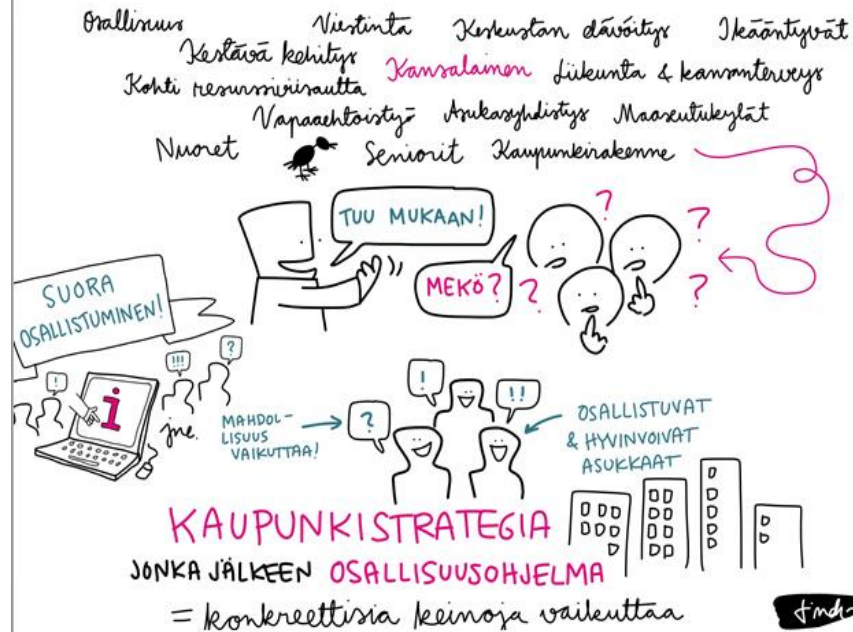 Osallisuus Viestintä Keskustan elävöitys Ikääntyvät
Kestävä kehitys Kansalainen Liikunta & kansanterveys
Kohti resurssiviisautta
Vapaaehtoistyö Asukasyhdistys Maaseutukylät
Nuoret Seniorit Kaupunkirakenne
TUU MUKAAN!
MEKÖ?
? ? ? ?
SUORA
OSALLISTUMINEN!
! !!! ?
i
jne.
MAHDOL-
LISUUS
VAIKUTTAA!
? ! !!
OSALLISTUVAT
& HYVINVOIVAT
ASUKKAAT
KAUPUNKISTRATEGIA
JONKA JÄLKEEN OSALLISUUSOHJELMA
= konkreettisia keinoja vaikuttaa